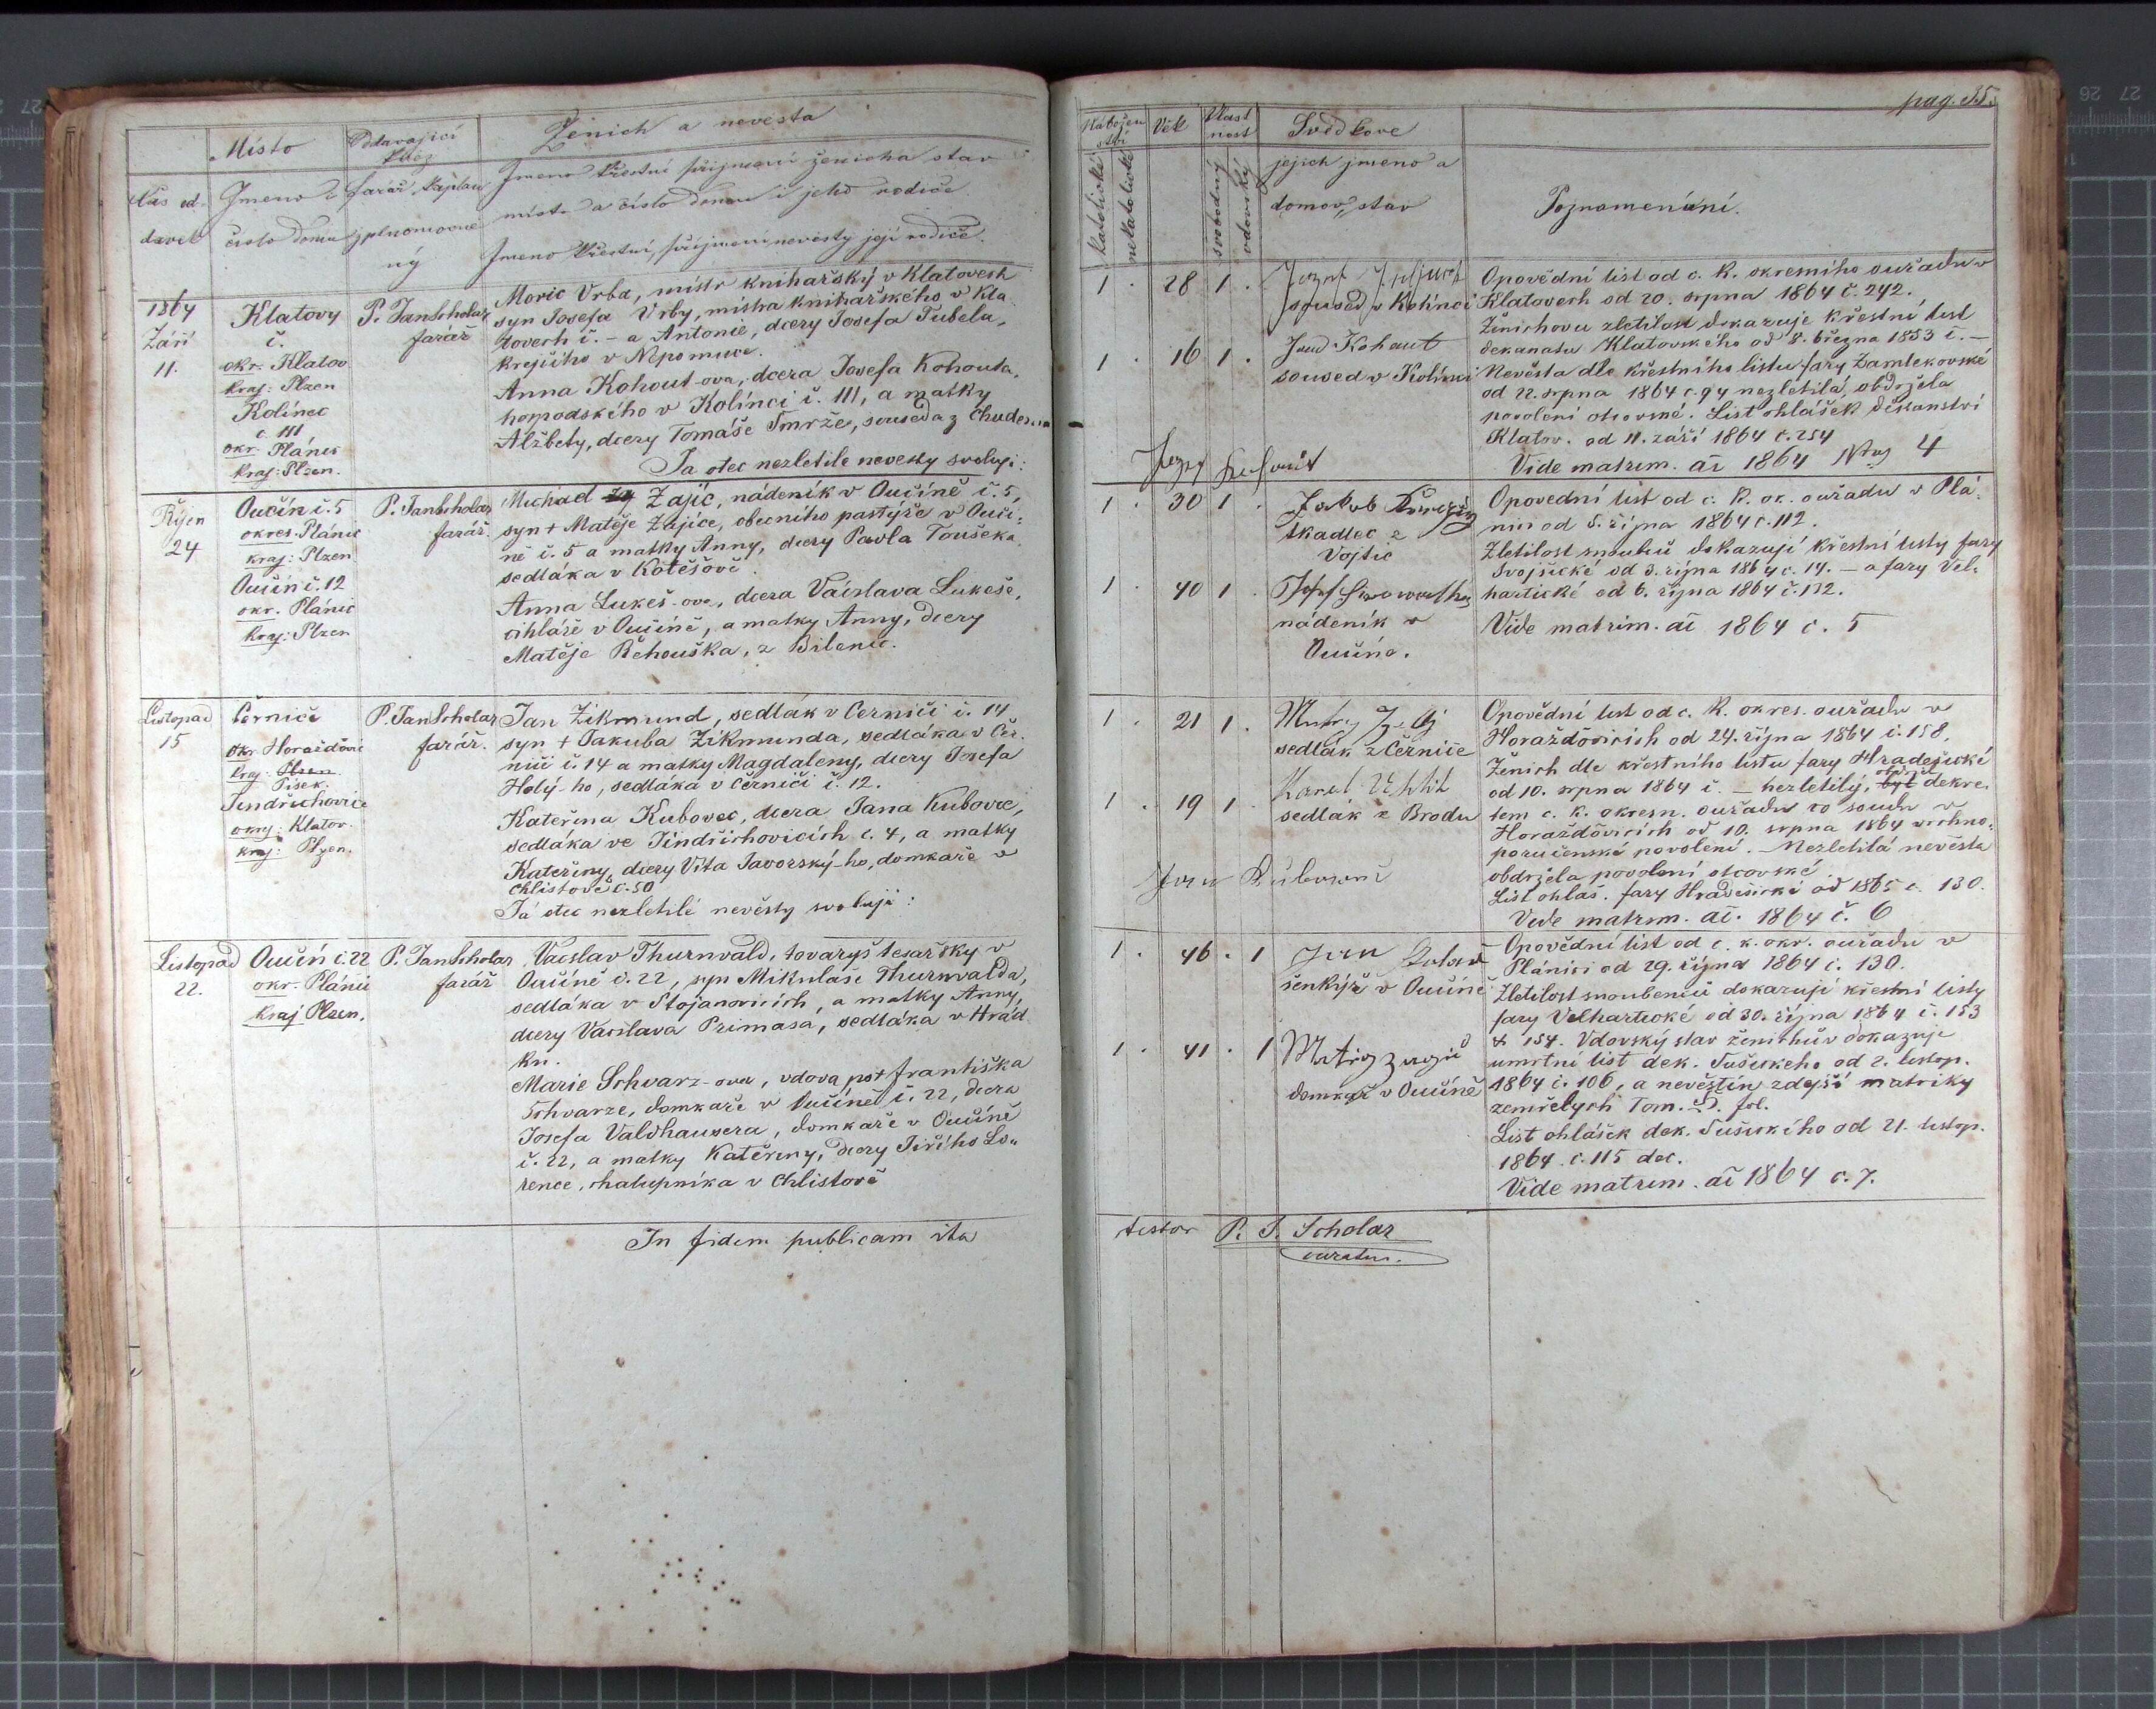 Místo
Oddavající
kněz
Ženich a nevěsta
Čas od-
davek
Jmeno a
číslo domu
farář, kaplan
zplnomocně
ný
Jmeno křestní příjmení ženicha stav
místo a číslo domu i jeho rodiče
Jmeno křestní, příjmení nevěsty její rodiče.
1864
Září
11.
Klatovy
č.
okr. Klatov
kraj: Plzen
Kolínec
č. 111
okr. Plánic
kraj: Plzen.
P. Jan Scholar
farář
Moric Vrba, mistr knihařský v Klatovech
syn Josefa Vrby, mistra knihařského v Kla
tovech č. – a Antonie, dcery Josefa Tubela,
krejčího v Nepomuce.
Anna Kohout-ova, dcera Josefa Kohouta,
hospodského v Kolínci č. 111, a matky
Alžbety, dcery Tomáše Smrže, souseda z
Ja otec nezletile nevesty svoluji:
Říjen
24
Oučín č. 5
okres. Plánic
kraj: Plzen
Oučín č. 12
okr. Plánic
kraj: Plzen
P. Jan Scholar
farář.
Michael Zajíc, nádeník v Oučíně č. 5,
syn + Matěje Zajíce, obecního pastýře v Oučí-
ně č. 5 a matky Anny, dcery Pavla Toušeka
sedláka v Kotěšově.
Anna Lukeš-ova, dcera Václava Lukeše,
cihláře v Oučíně, a matky Anny, dcery
Matěje Řehouška, z Bilenic.
Listopad
15
Černiče
okr. Horažďovic
kraj: Plzen.
Písek.
Jindřichovice
okrj: Klatov.
kraj: Plzen.
P. Jan Scholar
farář.
Jan Zikmund, sedlák v Černíči č. 14
syn + Jakuba Zikmunda, sedláka v Čer.
níči č. 14 a matky Magdaleny, dcery Josefa
Holý-ho, sedláka v Černíči č. 12.
Kateřina Kubovec, dcera Jana Kubovce,
sedláka ve Jindřichovicích č. 4, a matky
Kateřiny, dcery Víta Javorský-ho, domkaře v
Chlistově č. 50
Já otec nezletilé nevěsty svoluji:
Listopad
22.
Oučín č. 22
okr. Plánic
kraj Plzen.
P. Jan Scholar
farář
Vaclav Thurnvald, tovaryš tesařsky v
Oučíně č. 22, syn Mikuláše Thurnvalda,
sedláka v Stojanovicích, a matky Anny,
dcery Vaclava Primasa, sedláka v Hrád
ku.
Marie Schvarz-ova, vdova po + františka
Schvarze, domkaře v Oučíně č. 22, dcera
Josefa Valdhausera, domkaře v Oučíně
č. 22, a matky Kateřiny, dcery Jiřího Lo-
rence, chalupníka v Chlistově
In fidem publicam ita
pag. 35.
Nábožen
ství
Věk
Vlast
nost
Svědkove
katolické
nekatolické
svobodný
vdovský
jejich jmeno a
domov, stav
Poznamenání.
1 . 28 1 .
soused v Kolínci
1 . 16 1 .
Kohaut
soused v Kolínci
Opovědní list od c. k. okresního ouřadu v
Klatovech od 20. srpna 1864 č. 242.
Ženichovu zletilost dokazuje křestní list
dekanatu Klatovského od 8. března 1853 č. –
Nevěsta dle křestního listu fary Zamlekovské
od 22. srpna 1864 č. 94 nezletilá, obdržela
povolení otcovské. List ohlášek děkanství
Klatov. od 11. září 1864 č. 254
Vide matrim. ai 1864 Nrus 4
1 . 30 1 .
Jakub
tkadlec z
Vojtic
1 . 40 1 .
nádeník v
Oučíně.
Opovední list od c. k. ok. ouřadu v Plá-
nici od 5. října 1864 č. 112.
Zletilost snoubců dokazují křestní listy fary
Svojšické od 3. října 1864 č. 14. – a fary Vel-
hartické od 6. října 1864 č. 132.
Vide matrim. ai 1864 č. 5
1 . 21 1 .
sedlák z Černiče
1 . 19 1 .
Karel
sedlák z Brodu
Jan
Opovědní list od c. k. okres. ouřadu v
Horažďovicích od 24. října 1864 č. 158.
Ženich dle křestního listu fary Hradešické
od 10. srpna 1864 č. – nezletilý, obdržel dekre-
tem c. k. okresn. ouřadu co soudu v
Horažďovicích od 10. srpna 1864 vrchno-
poručenské povolení. – Nezletilá nevěsta
obdržela povolení otcovské.
List ohlaš. fary Hradešické od 1865 č. 130.
Vide matrim. ai. 1864 č. 6
1 . 46 . 1
Jan
šenkýř v Oučíně
1 . 41 . 1
domkař v Oučíně
Opovědní list od c. k. okr. ouřadu v
Plánici od 29. října 1864 č. 130.
Zletilost snoubenců dokazují křestní listy
fary Velhartické od 30. října 1864 č. 153
& 154. Vdovský stav ženichův dokazuje
umrtní list dek. Sušického od 2. listop.
1864 č. 106, a nevěstin zdejší matriky
zemřelých Tom. fol.
List ohlášek dek. Sušického od 21. listop.
1864. č. 115 dec.
Vide matrim. ai 1864 č. 7.
testor P. J. Scholar
curatus.